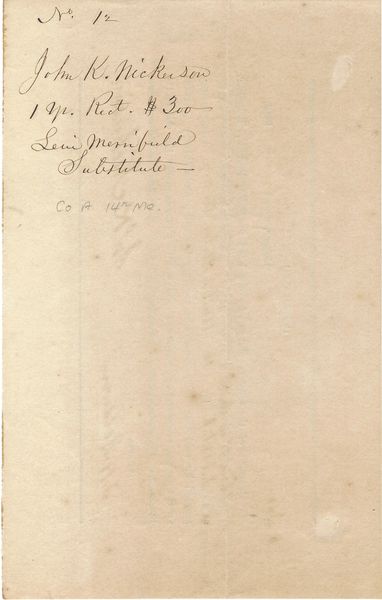 No. 12
John K. Nickerson
1 yr. Rect. $300
Levi Merrifield
Substitute —
Co A 14th Me.